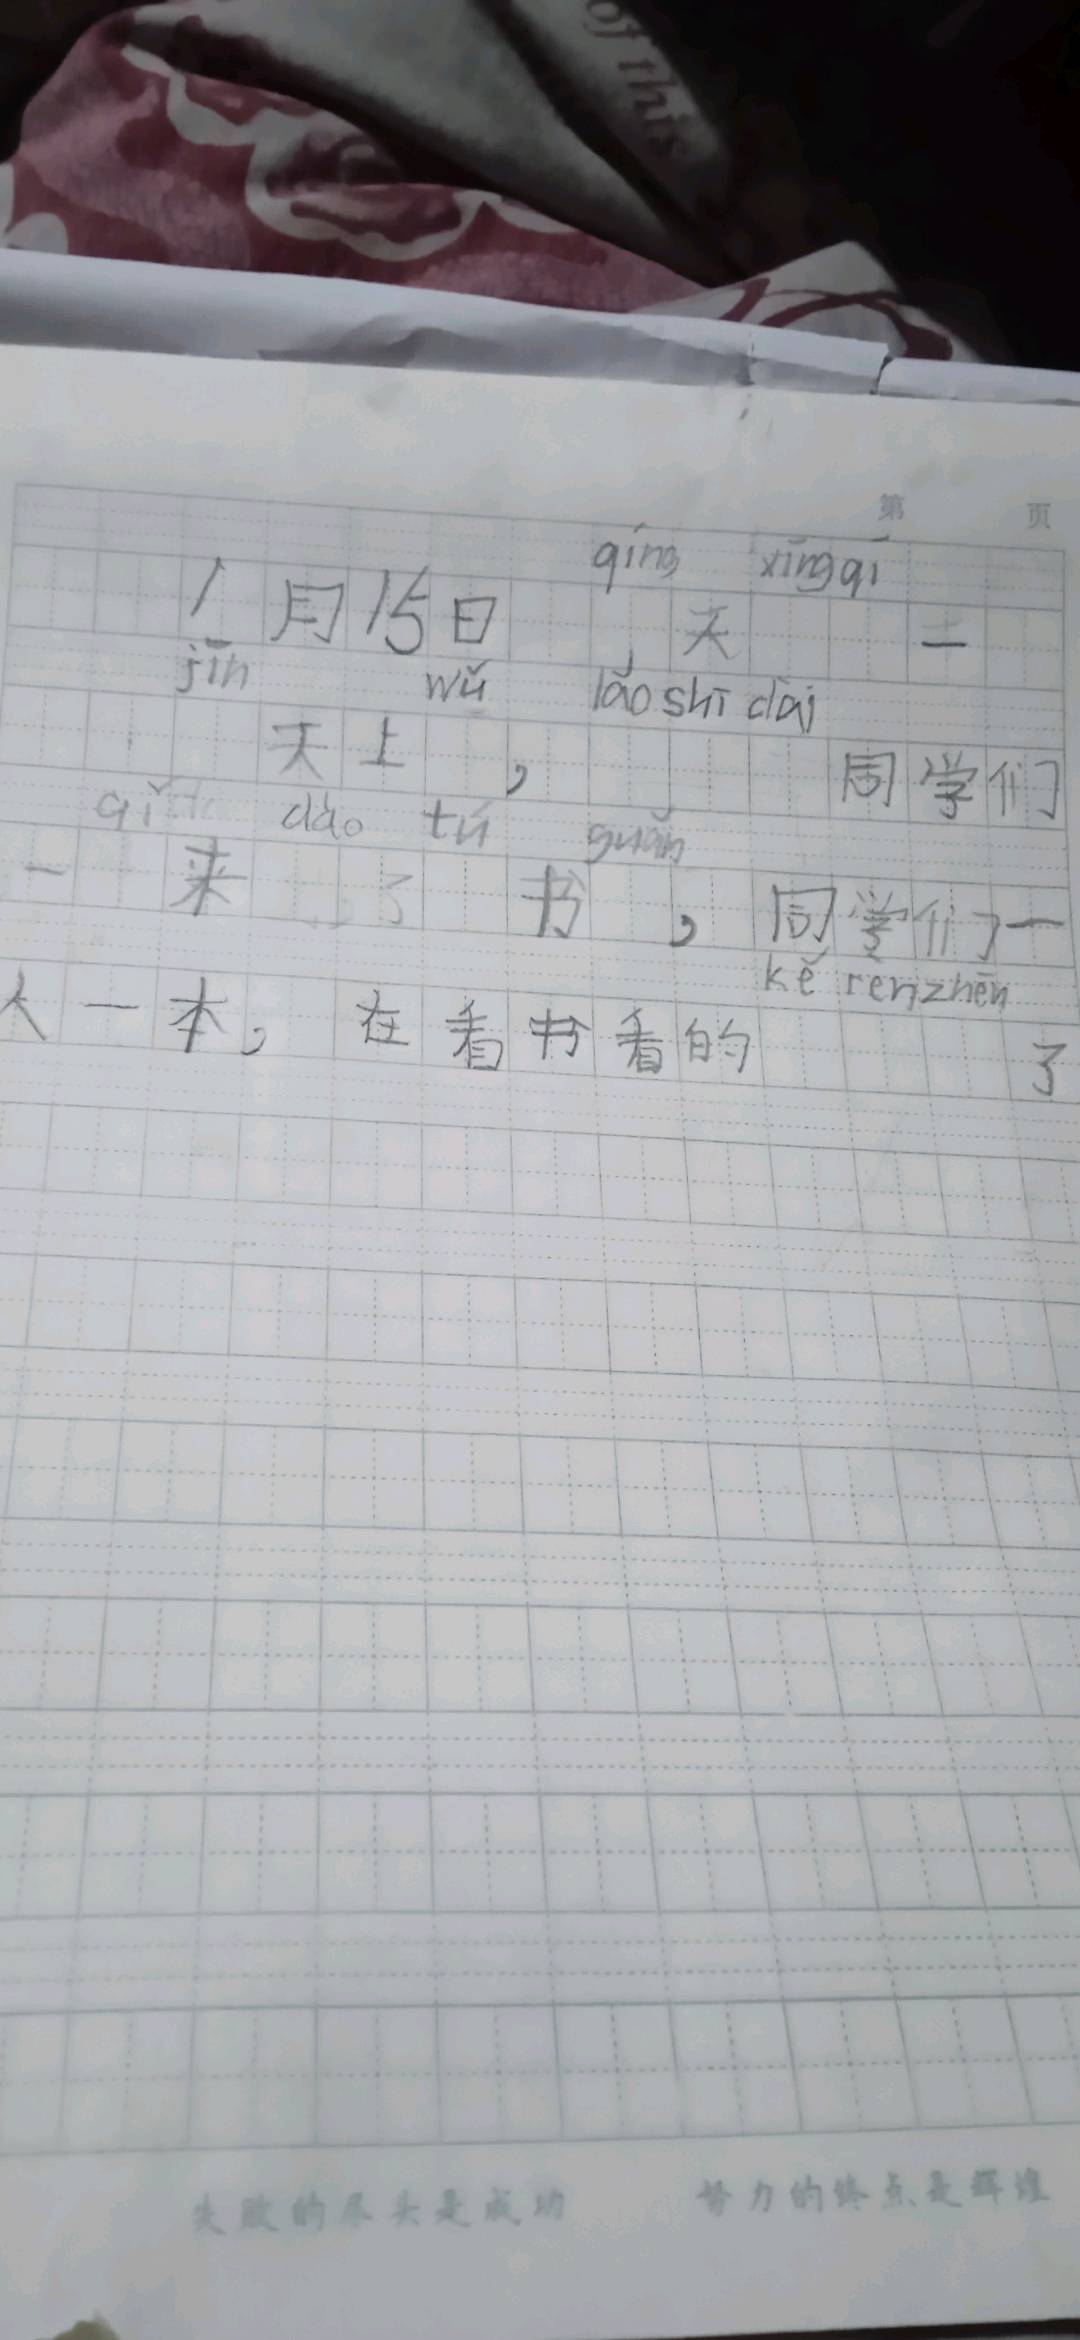 of this
第 页
qíng xīngqī
1月15日 天 一
jīn wǔ lǎo shī dài
天上 , 同学们
qǐ dào tú guǎn
一 来 了 书 , 同学们一
kě rèn zhēn
人一本, 在看书看的 了
失败的尽头是成功 努力的终点是辉煌